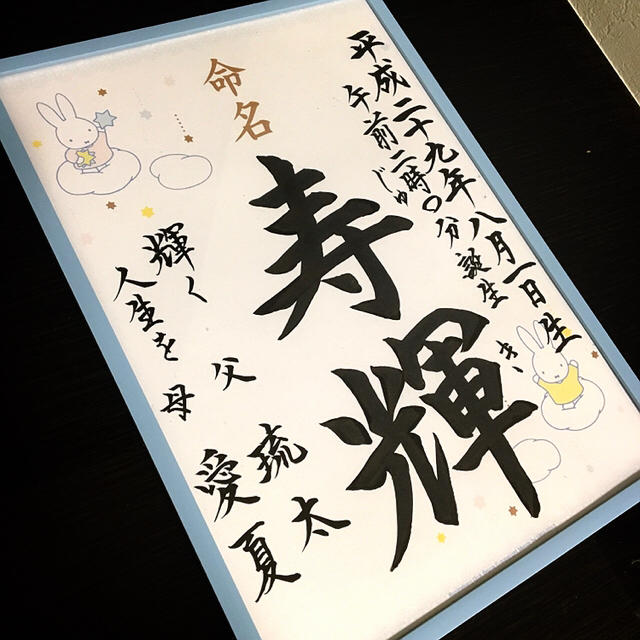 平成二十九年八月一日生
午前二時〇分誕生
命名
寿輝
じゅ
き
輝く
人生を
父 琉太
母 愛夏